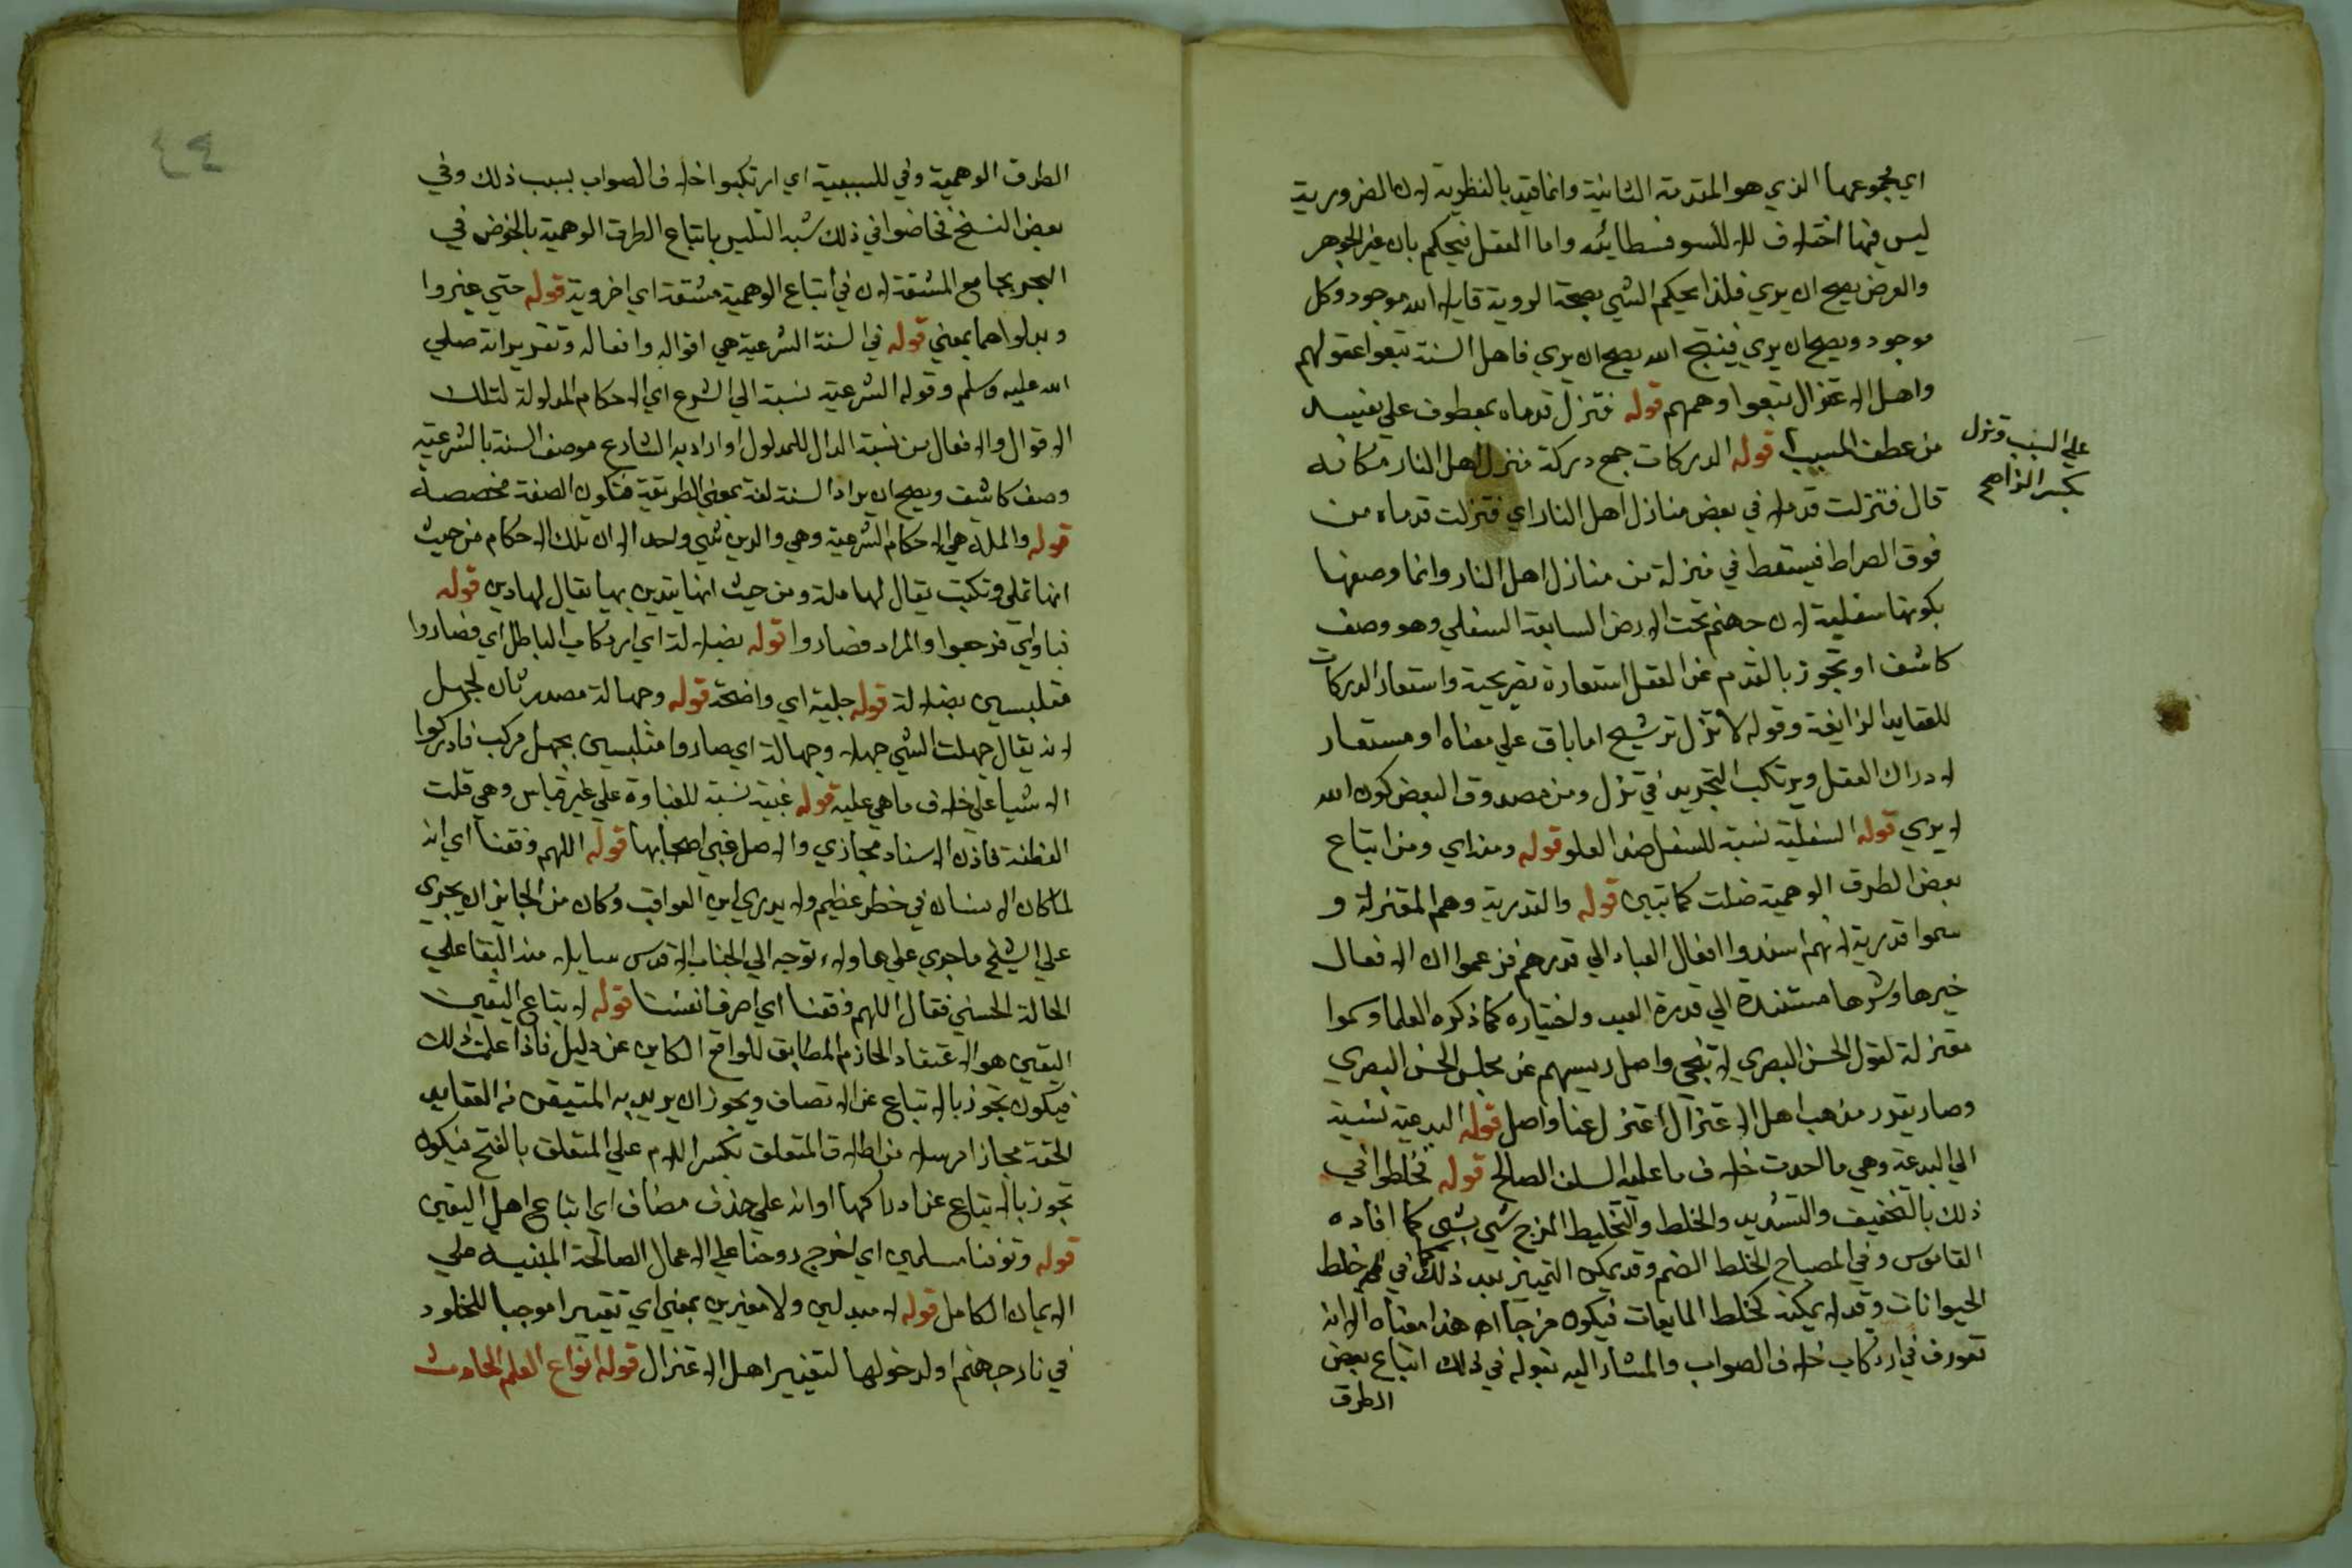 اي مجموعها الذي هو المقدمة الثانية وانما قيد بالنظرية لان الضرورية
ليس فيها اختلاف الا للسوفسطائيه واما العقل فيحكم بان غير الجوهر
والعرض يصح ان يري فلذا يحكم الشي بصحة الروية قايلا الله موجود وكل
موجود ويصح ان يري فينتج الله يصح ان يري فاهل السنة تبعوا عقولهم
واهل الاعتزال تبعوا وهمهم قوله فتزل قدماه معطوف علي
من عطف المسبب قوله الدركات جمع دركة منزل اهل النار فكانه
علي السبب وتزل
بكسر الزا اهـ
قال فتزلت قدماه في بعض منازل اهل النار اي فتزلت قدماه من
فوق الصراط فيسقط في منزلة من منازل اهل النار وانما وصفها
بكونها سفلية لان جهنم تحت الارض السابعة السفلي وهو وصف
كاشف او تجوز بالقدم عن العقل استعارة تصريحية واستعار الدركات
للعقايد الزايغة وقوله لا تزل ترشيح اما باق علي معناه او مستعار
لادراك العقل ويرتكب التجريد في تزل ومن مصدوق البعض كون الله
لا يري قوله السفلية نسبة للسفل ضد العلو قوله ومن اي ومن اتباع
بعض الطرق الوهمية ضلت كما تبين قوله والقدرية وهم المعتزلة و
سموا قدرية لانهم اسندوا افعال العباد الي قدرهم فزعموا ان الافعال
خيرها وشرها مستندة الي قدرة العبد واختياره كما ذكره العلما وسموا
معتزلة لقول الحسن البصري لما تنحي واصل رييسهم عن مجلس الحسن البصري
وصار يقرر مذهب اهل الاعتزال اعتزل عنا واصل قوله البدعية نسبة
الي البدعة وهي ما احدث خلاف ما عليه السلف الصالح قوله تخلطوا في
ذلك بالتخفيف والتشديد والخلط والتخليط المزج شي بشي كما افاده
القاموس وفي المصباح الخلط الضم وقد يمكن التمييز بعد ذلك كما في خلط
الحيوانات وقد لا يمكن كخلط المايعات فيكون مزجا اهـ هذا معناه الا انه
تعورف في ارتكاب خلاف الصواب والمشار اليه بقوله في ذلك اتباع بعض
الطرق
٤٤
الطرق الوهمية وفي للسببية اي ارتكبوا خلاف الصواب بسبب ذلك وفي
بعض النسخ فخاضوا في ذلك شبه التلبس باتباع الطرق الوهمية بالخوض في
البحر بجامع المشقة لان في اتباع الوهمية مشقة اي اخروية قوله حتي غيروا
وبدلوا هما بمعني قوله في السنة الشرعية هي اقواله وافعاله وتقريراته صلي
الله عليه وسلم وقوله الشرعية نسبة الي الشرع اي الاحكام المدلولة لتلك
الاقوال والافعال من نسبة الدال للمدلول او اراد به الشارع فوصف السنة بالشرعية
وصف كاشف ويصح ان يراد السنة لغة بمعني الطريقة فتكون الصفة مخصصة
قوله والملة هي الاحكام الشرعية وهي والدين شي واحد الا ان تلك الاحكام من حيث
انها تملي وتكتب يقال لها ملة ومن حيث انها يتدين بها يقال لها دين قوله
فباواي فرجعوا والمراد فصاروا قوله بضلالة اي ارتكاب الباطل اي فصاروا
متلبسين بضلالة قوله جلية اي واضحة قوله وجهالة مصدر ثان لجهل
لانه يقال جهلت الشي جهلا وجهالة اي صاروا متلبسين بجهل مركب فادركوا
الاشيا علي خلاف ما هي عليه قوله غبية نسبة للغباوة علي غير قياس وهي قلت
الفطنة فاذن الاسناد مجازي والاصل غبي اصحابها قوله اللهم وفقنا اي انه
لما كان الانسان في خطر عظيم ولا يدري اين العواقب وكان من الجايز ان يجري
علي الشيخ ما جري علي هاولاء توجه الي الجناب الاقدس سايلا منه البقا علي
الحالة الحسني فقال اللهم وفقنا اي اصرف انفسنا قوله لاتباع اليقين
اليقين هو الاعتقاد الجازم المطابق للواقع الكاين عن دليل فاذا علمت ذلك
فيكون تجوز بالاتباع عن الاتصاف ويجوز ان يريد به المتيقن من العقايد
الحقة مجازا مرسلا من اطلاق المتعلق بكسر اللام علي المتعلق بالفتح فيكون
تجوز بالاتباع عن ادراكها او انه علي حذف مضاف اي اتباع اهل اليقين
قوله وتوفنا مسلمين اي اخرج روحنا علي الاعمال الصالحة المبنية علي
الايمان الكامل قوله لا مبدلين ولا مغيرين بمعني اي تغييرا موجبا للخلود
في نار جهنم او لدخولها لتغيير اهل الاعتزال قوله انواع العلم الحادث